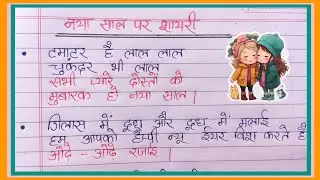 नया साल पर शायरी
टमाटर है लाल लाल
चुकंदर भी लाल
सभी प्यारे दोस्तों को
मुबारक हो नया साल।
गिलास में दूध और दूध में मलाई
हम आपको हैप्पी न्यू ईयर विश करते हैं
ओढ़े - ओढ़े रजाई।